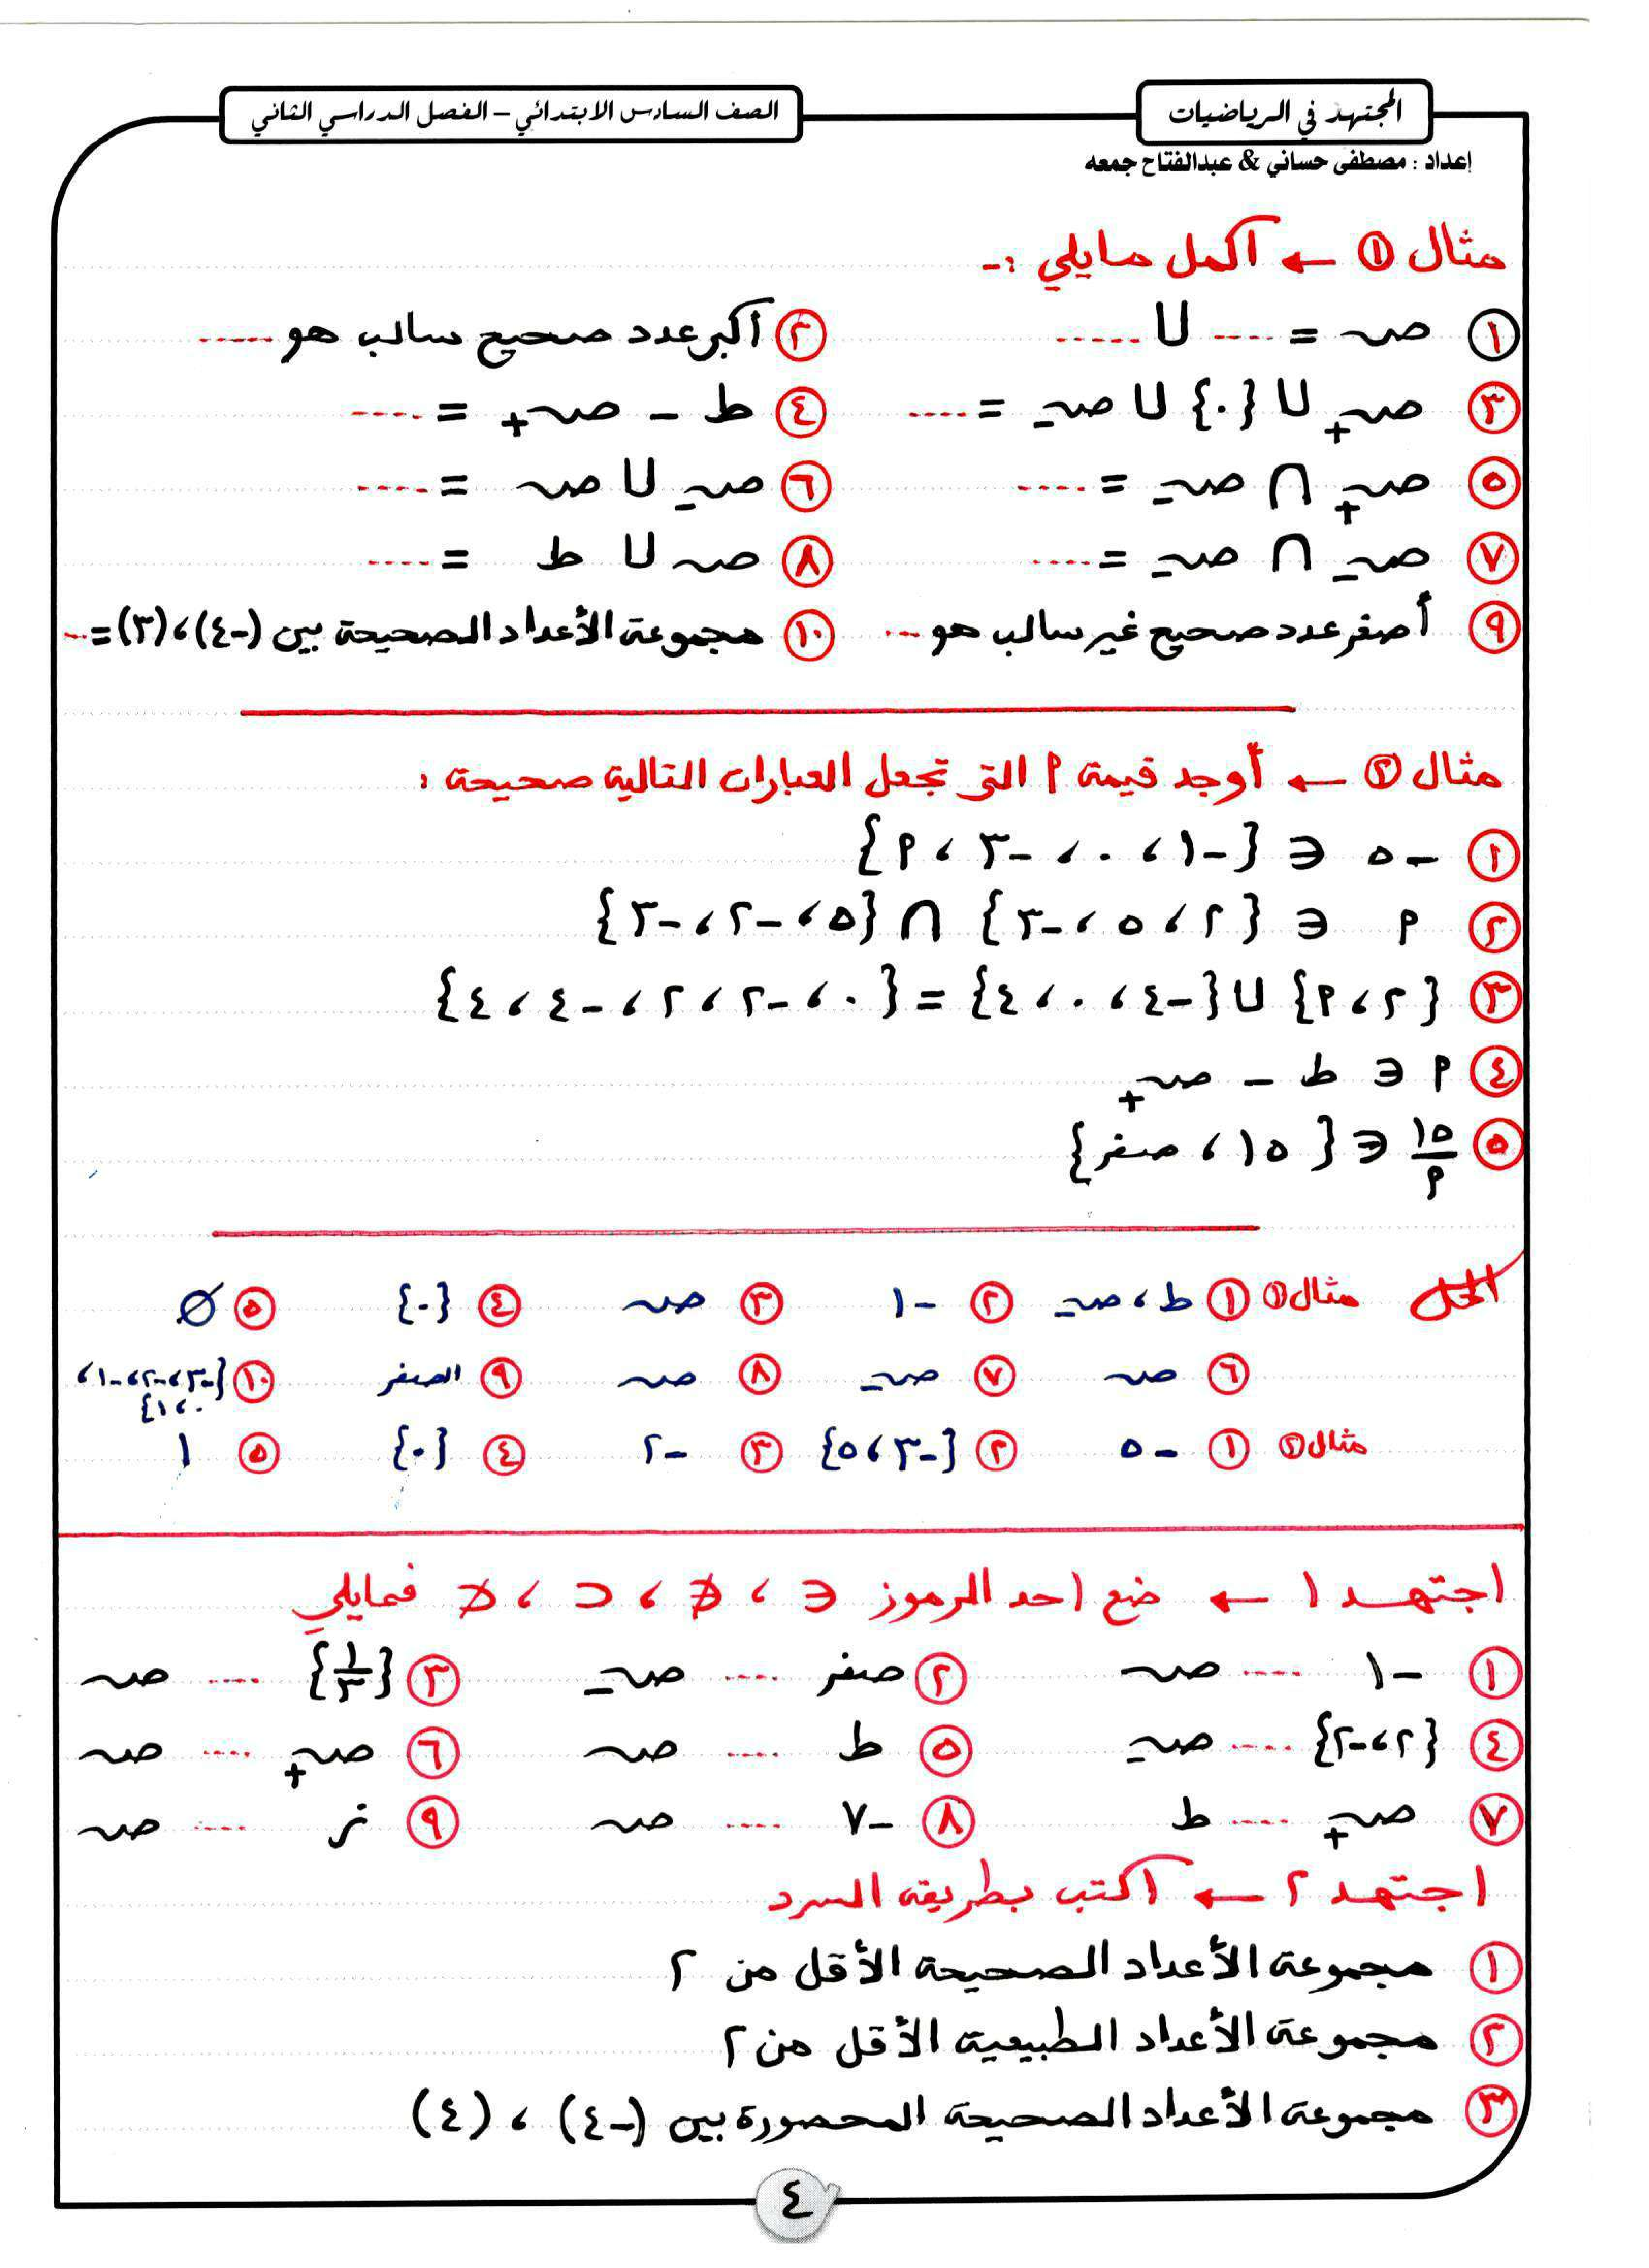 المجتهد في الرياضيات
الصف السادس الابتدائي – الفصل الدراسي الثاني
إعداد : مصطفى حساني & عبدالفتاح جمعه
مثال ① ← أكمل مايلي :-
① صـ = .... ∪ .....
② أكبر عدد صحيح سالب هو .....
③ صـ+ ∪ {٠} ∪ صـ- = ....
④ ط – صـ+ = ....
⑤ صـ+ ∩ صـ- = ....
⑥ صـ- ∪ صـ = ....
⑦ صـ- ∩ صـ- = ....
⑧ صـ ∪ ط = ....
⑨ أصغر عدد صحيح غير سالب هو ...
⑩ مجموعة الأعداد الصحيحة بين (-٤)، (٣) = ...
مثال ② ← أوجد قيمة م التي تجعل العبارات التالية صحيحة :
① -٥ ∈ {-١، ٠، -٣، م}
② م ∈ {٢، ٥، -٣} ∩ {٥، -٢، -٣}
③ {٢، م} ∪ {-٤، ٠، ٤} = {٠، -٢، ٢، -٤، ٤}
④ م ∈ ط – صـ+
⑤ ١٥/م ∈ {١٥، صفر}
الحل مثال ① ① ط، صـ- ② -١ ③ صـ ④ {٠} ⑤ ∅
⑥ صـ ⑦ صـ- ⑧ صـ ⑨ الصفر ⑩ {-٣، -٢، -١،
٠، ١}
مثال ② ① -٥ ② {-٣، ٥} ③ -٢ ④ {٠} ⑤ ١
اجتهد ١ ← ضع احد الرموز ∈ ، ∉ ، ⊂ ، ⊄ فيمايلي
① -١ .... صـ ② صفر .... صـ- ③ {١/٣} .... صـ
④ {٢، -٢} .... صـ- ⑤ ط .... صـ ⑥ صـ+ .... صـ
⑦ صـ+ .... ط ⑧ -٧ .... صـ ⑨ ن .... صـ
اجتهد ٢ ← اكتب بطريقة السرد
① مجموعة الأعداد الصحيحة الأقل من ٢
② مجموعة الأعداد الطبيعية الأقل من ٢
③ مجموعة الأعداد الصحيحة المحصورة بين (-٤) ، (٤)
٤